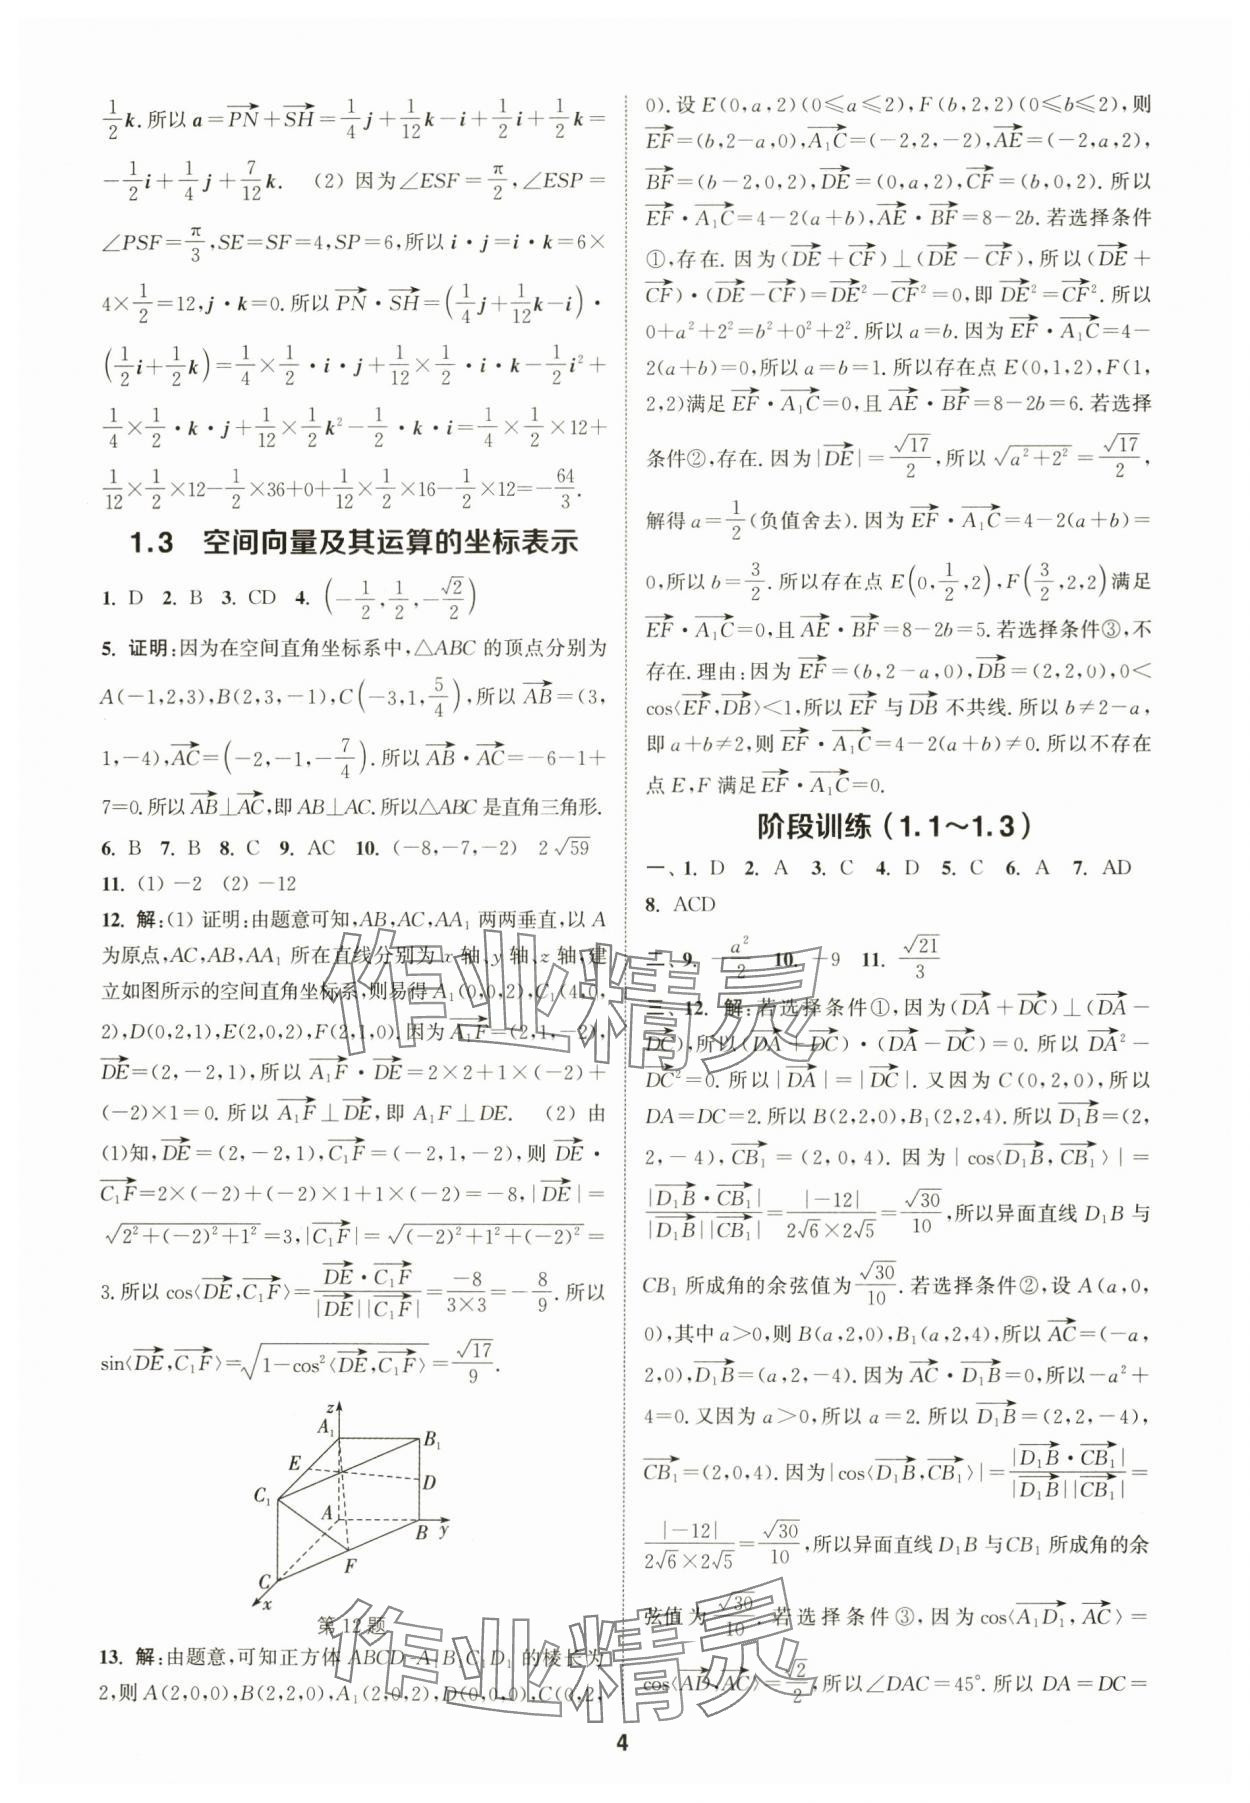 $\frac{1}{2}$k.所以 a=$\overrightarrow{PN}$+$\overrightarrow{SH}$=$\frac{1}{4}$j+$\frac{1}{12}$k-i+$\frac{1}{2}$i+$\frac{1}{2}$k=
-$\frac{1}{2}$i+$\frac{1}{4}$j+$\frac{7}{12}$k. (2) 因为∠ESF=$\frac{π}{2}$,∠ESP=
∠PSF=$\frac{π}{3}$,SE=SF=4,SP=6,所以 i·j=i·k=6×
4×$\frac{1}{2}$=12,j·k=0.所以 $\overrightarrow{PN}$·$\overrightarrow{SH}$=($\frac{1}{4}$j+$\frac{1}{12}$k-i)·
($\frac{1}{2}$i+$\frac{1}{2}$k)=$\frac{1}{4}$×$\frac{1}{2}$·i·j+$\frac{1}{12}$×$\frac{1}{2}$·i·k-$\frac{1}{2}$i²+
$\frac{1}{4}$×$\frac{1}{2}$·k·j+$\frac{1}{12}$×$\frac{1}{2}$k²-$\frac{1}{2}$·k·i=$\frac{1}{4}$×$\frac{1}{2}$×12+
$\frac{1}{12}$×$\frac{1}{2}$×12-$\frac{1}{2}$×36+0+$\frac{1}{12}$×$\frac{1}{2}$×16-$\frac{1}{2}$×12=-$\frac{64}{3}$.
1.3 空间向量及其运算的坐标表示
1. D 2. B 3. CD 4. (-$\frac{1}{2}$,$\frac{1}{2}$,-$\frac{\sqrt{2}}{2}$)
5. 证明:因为在空间直角坐标系中,△ABC 的顶点分别为
A(-1,2,3),B(2,3,-1),C(-3,1,$\frac{5}{4}$),所以 $\overrightarrow{AB}$=(3,
1,-4),$\overrightarrow{AC}$=(-2,-1,-$\frac{7}{4}$).所以 $\overrightarrow{AB}$·$\overrightarrow{AC}$=-6-1+
7=0.所以 $\overrightarrow{AB}$⊥$\overrightarrow{AC}$,即 AB⊥AC.所以△ABC 是直角三角形.
6. B 7. B 8. C 9. AC 10. (-8,-7,-2) 2$\sqrt{59}$
11. (1) -2 (2) -12
12. 解:(1) 证明:由题意可知,AB,AC,AA₁ 两两垂直,以 A
为原点,AC,AB,AA₁ 所在直线分别为 x 轴、y 轴、z 轴,建
立如图所示的空间直角坐标系,则易得 A₁(0,0,2),C₁(4,0,
2),D(0,2,1),E(2,0,2),F(2,1,0).因为 $\overrightarrow{A_1F}$=(2,1,-2),
$\overrightarrow{DE}$=(2,-2,1),所以 $\overrightarrow{A_1F}$·$\overrightarrow{DE}$=2×2+1×(-2)+
(-2)×1=0.所以 $\overrightarrow{A_1F}$⊥$\overrightarrow{DE}$,即 A₁F⊥DE. (2) 由
(1)知,$\overrightarrow{DE}$=(2,-2,1),$\overrightarrow{C_1F}$=(-2,1,-2),则 $\overrightarrow{DE}$·
$\overrightarrow{C_1F}$=2×(-2)+(-2)×1+1×(-2)=-8,|$\overrightarrow{DE}$|=
$\sqrt{2^2+(-2)^2+1^2}$=3,|$\overrightarrow{C_1F}$|=$\sqrt{(-2)^2+1^2+(-2)^2}$=
3.所以 cos⟨$\overrightarrow{DE}$,$\overrightarrow{C_1F}$⟩=$\frac{\overrightarrow{DE}·\overrightarrow{C_1F}}{|\overrightarrow{DE}||\overrightarrow{C_1F}|}$=$\frac{-8}{3×3}$=-$\frac{8}{9}$.所以
sin⟨$\overrightarrow{DE}$,$\overrightarrow{C_1F}$⟩=$\sqrt{1-cos^2⟨\overrightarrow{DE},\overrightarrow{C_1F}⟩}$=$\frac{\sqrt{17}}{9}$.
z
A₁
B₁
E
D
C₁
A
B y
F
C
x
第12题
13. 解:由题意,可知正方体 ABCD-A₁B₁C₁D₁ 的棱长为
2,则 A(2,0,0),B(2,2,0),A₁(2,0,2),D(0,0,0),C(0,2,
0).设 E(0,a,2)(0≤a≤2),F(b,2,2)(0≤b≤2),则
$\overrightarrow{EF}$=(b,2-a,0),$\overrightarrow{A_1C}$=(-2,2,-2),$\overrightarrow{AE}$=(-2,a,2),
$\overrightarrow{BF}$=(b-2,0,2),$\overrightarrow{DE}$=(0,a,2),$\overrightarrow{CF}$=(b,0,2).所以
$\overrightarrow{EF}$·$\overrightarrow{A_1C}$=4-2(a+b),$\overrightarrow{AE}$·$\overrightarrow{BF}$=8-2b.若选择条件
①,存在.因为($\overrightarrow{DE}$+$\overrightarrow{CF}$)⊥($\overrightarrow{DE}$-$\overrightarrow{CF}$),所以($\overrightarrow{DE}$+
$\overrightarrow{CF}$)·($\overrightarrow{DE}$-$\overrightarrow{CF}$)=$\overrightarrow{DE}$²-$\overrightarrow{CF}$²=0,即 $\overrightarrow{DE}$²=$\overrightarrow{CF}$².所以
0+a²+2²=b²+0²+2².所以 a=b.因为 $\overrightarrow{EF}$·$\overrightarrow{A_1C}$=4-
2(a+b)=0,所以 a=b=1.所以存在点 E(0,1,2),F(1,
2,2)满足 $\overrightarrow{EF}$·$\overrightarrow{A_1C}$=0,且 $\overrightarrow{AE}$·$\overrightarrow{BF}$=8-2b=6.若选择
条件②,存在.因为|$\overrightarrow{DE}$|=$\frac{\sqrt{17}}{2}$,所以 $\sqrt{a^2+2^2}$=$\frac{\sqrt{17}}{2}$,
解得 a=$\frac{1}{2}$(负值舍去).因为 $\overrightarrow{EF}$·$\overrightarrow{A_1C}$=4-2(a+b)=
0,所以 b=$\frac{3}{2}$.所以存在点 E(0,$\frac{1}{2}$,2),F($\frac{3}{2}$,2,2)满足
$\overrightarrow{EF}$·$\overrightarrow{A_1C}$=0,且 $\overrightarrow{AE}$·$\overrightarrow{BF}$=8-2b=5.若选择条件③,不
存在.理由:因为 $\overrightarrow{EF}$=(b,2-a,0),$\overrightarrow{DB}$=(2,2,0),0<
cos⟨$\overrightarrow{EF}$,$\overrightarrow{DB}$⟩<1,所以 $\overrightarrow{EF}$ 与 $\overrightarrow{DB}$ 不共线.所以 b≠2-a,
即 a+b≠2,则 $\overrightarrow{EF}$·$\overrightarrow{A_1C}$=4-2(a+b)≠0.所以不存在
点 E,F 满足 $\overrightarrow{EF}$·$\overrightarrow{A_1C}$=0.
阶段训练(1.1～1.3)
一、1. D 2. A 3. C 4. D 5. C 6. A 7. AD
8. ACD
二、9. -$\frac{a^2}{2}$ 10. -9 11. $\frac{\sqrt{21}}{3}$
三、12. 解:若选择条件①,因为($\overrightarrow{DA}$+$\overrightarrow{DC}$)⊥($\overrightarrow{DA}$-
$\overrightarrow{DC}$),所以($\overrightarrow{DA}$+$\overrightarrow{DC}$)·($\overrightarrow{DA}$-$\overrightarrow{DC}$)=0.所以 $\overrightarrow{DA}$²-
$\overrightarrow{DC}$²=0.所以|$\overrightarrow{DA}$|=|$\overrightarrow{DC}$|.又因为 C(0,2,0),所以
DA=DC=2.所以 B(2,2,0),B₁(2,2,4).所以 $\overrightarrow{D_1B}$=(2,
2,-4),$\overrightarrow{CB_1}$=(2,0,4).因为|cos⟨$\overrightarrow{D_1B}$,$\overrightarrow{CB_1}$⟩|=
$\frac{|\overrightarrow{D_1B}·\overrightarrow{CB_1}|}{|\overrightarrow{D_1B}||\overrightarrow{CB_1}|}$=$\frac{|-12|}{2\sqrt{6}×2\sqrt{5}}$=$\frac{\sqrt{30}}{10}$,所以异面直线 D₁B 与
CB₁ 所成角的余弦值为$\frac{\sqrt{30}}{10}$.若选择条件②,设 A(a,0,
0),其中 a>0,则 B(a,2,0),B₁(a,2,4),所以 $\overrightarrow{AC}$=(-a,
2,0),$\overrightarrow{D_1B}$=(a,2,-4).因为 $\overrightarrow{AC}$·$\overrightarrow{D_1B}$=0,所以-a²+
4=0.又因为 a>0,所以 a=2.所以 $\overrightarrow{D_1B}$=(2,2,-4),
$\overrightarrow{CB_1}$=(2,0,4).因为|cos⟨$\overrightarrow{D_1B}$,$\overrightarrow{CB_1}$⟩|=$\frac{|\overrightarrow{D_1B}·\overrightarrow{CB_1}|}{|\overrightarrow{D_1B}||\overrightarrow{CB_1}|}$=
$\frac{|-12|}{2\sqrt{6}×2\sqrt{5}}$=$\frac{\sqrt{30}}{10}$,所以异面直线 D₁B 与CB₁ 所成角的余
弦值为$\frac{\sqrt{30}}{10}$.若选择条件③,因为 cos⟨$\overrightarrow{A_1D_1}$,$\overrightarrow{AC}$⟩=
cos⟨$\overrightarrow{AD}$,$\overrightarrow{AC}$⟩=$\frac{\sqrt{2}}{2}$,所以∠DAC=45°.所以 DA=DC=
4
作业精灵
作业精灵